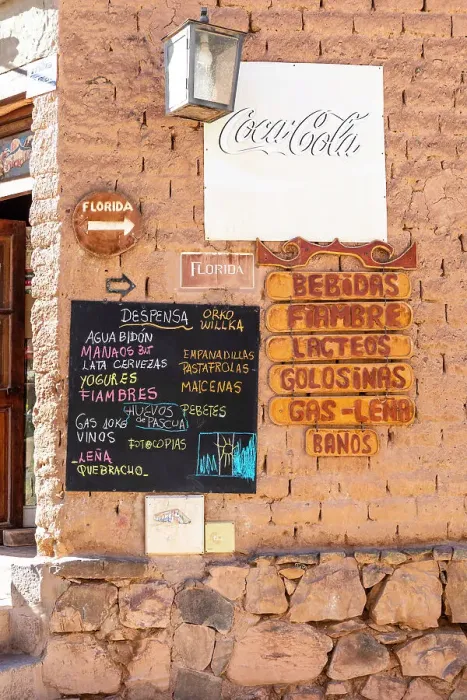 Coca-Cola
FLORIDA
FLORIDA
DESPENSA
ORKO
WILLKA
AGUA BIDÓN
MANAOS 3LT
LATA CERVEZAS
YOGURES
FIAMBRES
HUEVOS
DE PASCUA
GAS 10KG
VINOS
FOTOCOPIAS
_LEÑA
QUEBRACHO_
EMPANADILLAS
PASTAFROLAS
MAICENAS
PEBETES
BEBIDAS
FIAMBRE
LACTEOS
GOLOSINAS
GAS-LEÑA
BAÑOS